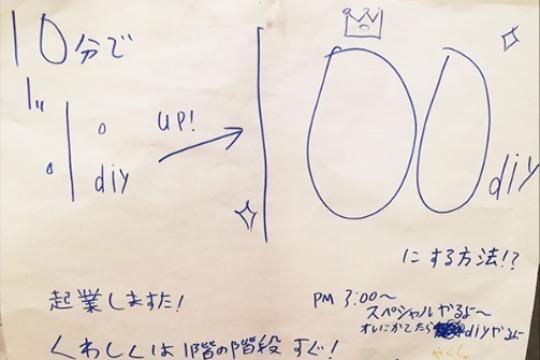 10分で
10 diy
UP!
100 diy
にする方法!?
起業しますた!
くわしくは1階の階段すぐ!
PM 3:00〜
スペシャルやるよ〜
オレにかてたら diyやるよ